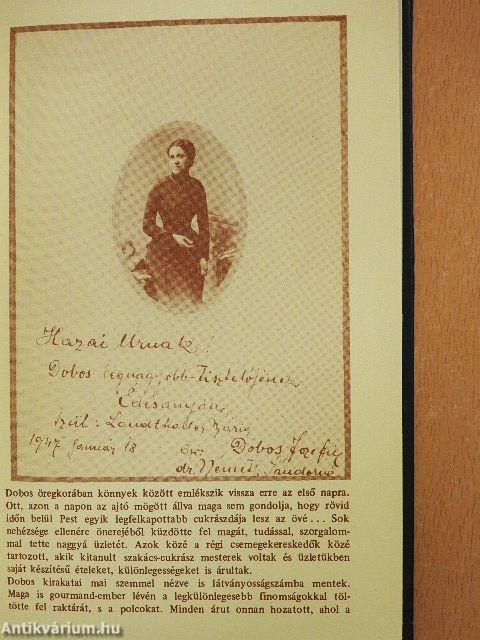 Hazai Urnak!
Dobos legnagyobb Tisztelőjének
Édesanyám
szül: Landtholler Mária
1947 Január 18
özv Dobos Jozefin
dr. Németh Sándorné
Dobos öregkorában könnyek között emlékszik vissza erre az első napra.
Ott, azon a napon az ajtó mögött állva maga sem gondolja, hogy rövid
időn belül Pest egyik legfelkapottabb cukrászdája lesz az övé . . . Sok
nehézsége ellenére önerejéből küzdötte fel magát, tudással, szorgalom-
mal tette naggyá üzletét. Azok közé a régi csemegekereskedők közé
tartozott, akik kitanult szakács-cukrász mesterek voltak és üzletükben
saját készítésű ételeket, különlegességeket is árultak.
Dobos kirakatai mai szemmel nézve is látványosságszámba mentek.
Maga is gourmand-ember lévén a legkülönlegesebb finomságokkal töl-
tötte fel raktárát, s a polcokat. Minden árut onnan hozatott, ahol a
Antikvárium.hu